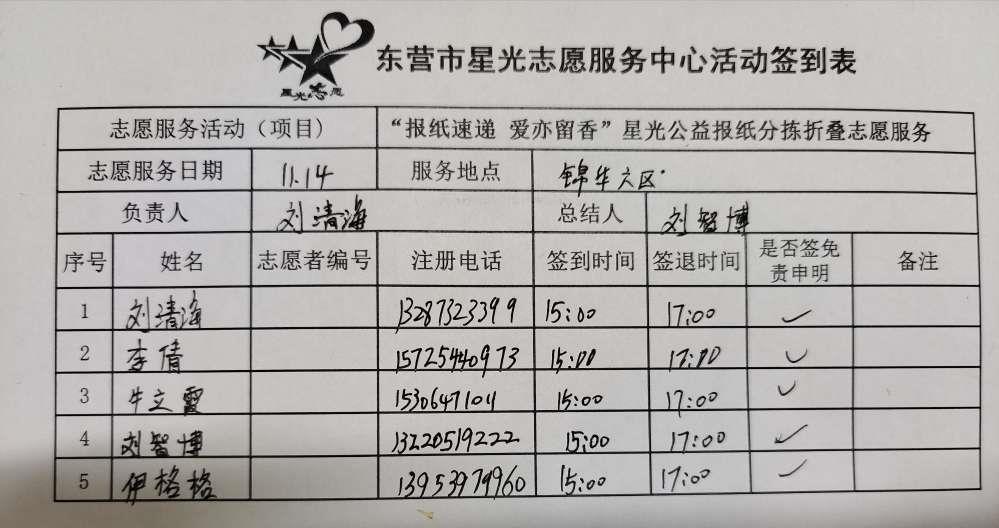 星光志愿
东营市星光志愿服务中心活动签到表
志愿服务活动（项目) “报纸速递 爱亦留香”星光公益报纸分拣折叠志愿服务
志愿服务日期 11.14 服务地点 锦华六区
负责人 刘清海 总结人 刘智博
序号 姓名 志愿者编号 注册电话 签到时间 签退时间 是否签免责申明 备注
1 刘清海 13287323399 15:00 17:00 ✓
2 李倩 15725440973 15:00 17:00 ✓
3 牛立霞 15:00 17:00 ✓
4 刘智博 13220519222 15:00 17:00 ✓
5 伊格格 13953979960 15:00 17:00 ✓